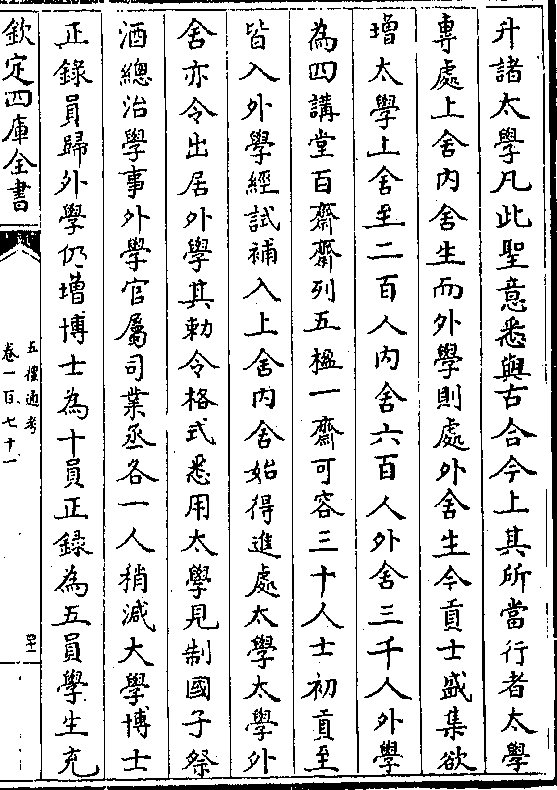 升諸太學凡此聖意悉與古合今上其所當行者太學
專處上舍內舍生而外學則處外舍生今貢士盛集欲
增太學上舍至二百人內舍六百人外舍三千人外學
為四講堂百齋齋列五楹一齋可容三十人士初貢至
皆入外學經試補入上舍內舍始得進處太學太學外
舍亦令出居外學其勅令格式悉用太學見制國子祭
酒總治學事外學官屬司業丞各一人稍減大學博士
正錄員歸外學仍增博士為十員正錄為五員學生充
欽定四庫全書
五禮通考
卷一百七十一